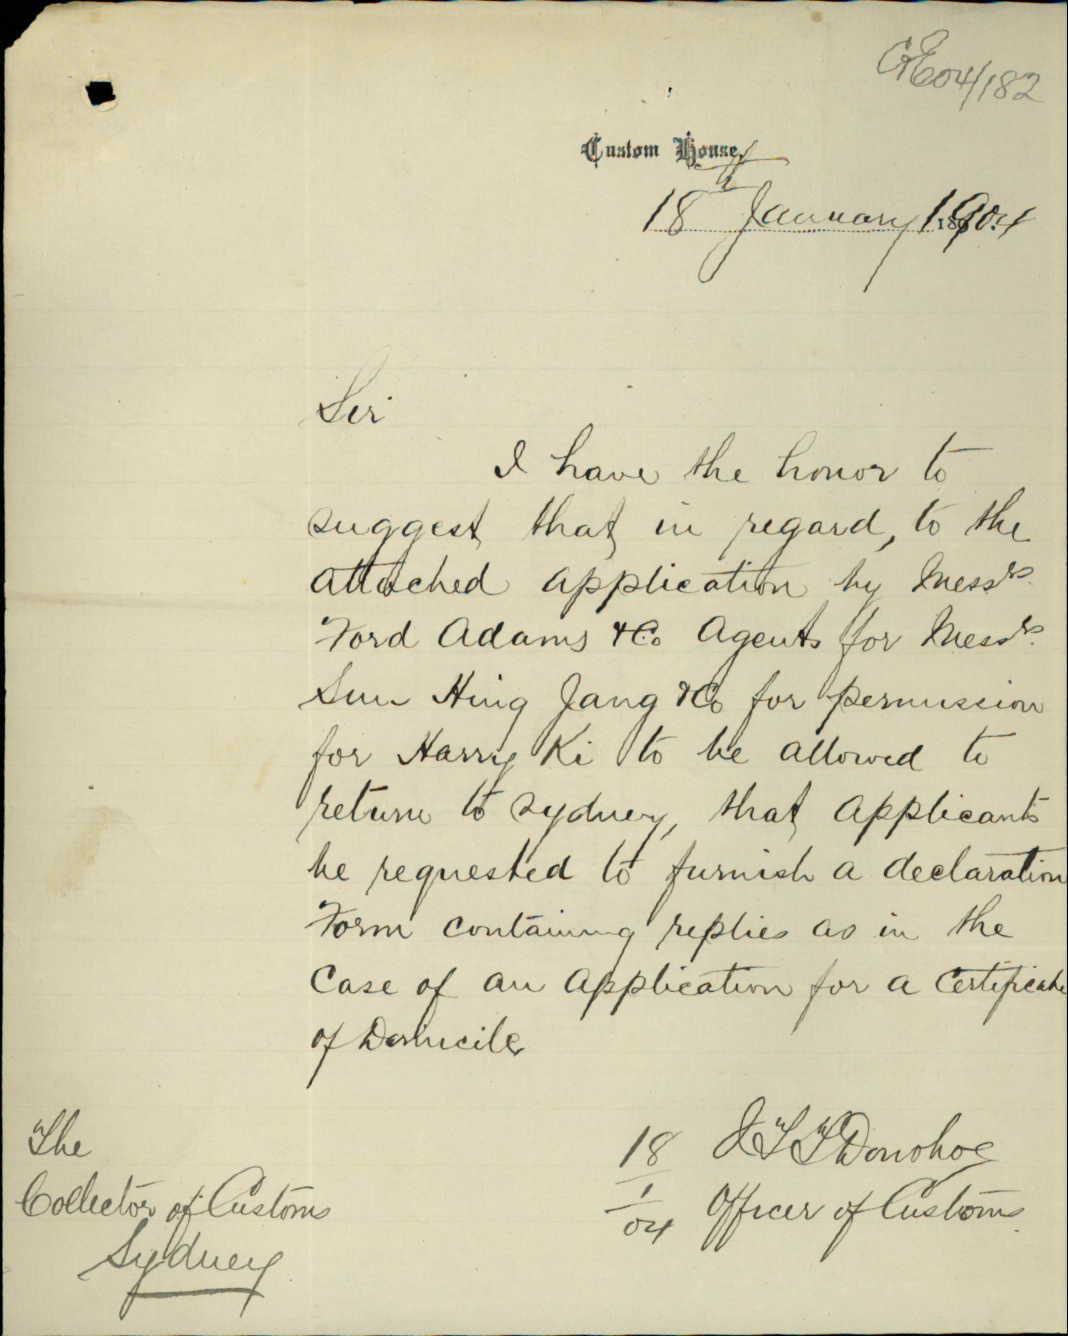 CE04/182
Custom House,
18th January 1904
Sir
I have the honor to
suggest that in regard, to the
attached application by Messrs.
Ford Adams & Co Agents for Messrs.
Sun Hing Jang & Co for permission
for Harry Ki to be allowed to
return to Sydney, that applicants
be requested to furnish a declaration
Form containing replies as in the
case of an application for a Certificate
of Domicile
The
Collector of Customs
Sydney
18/1/04
Donohoe
Officer of Customs.